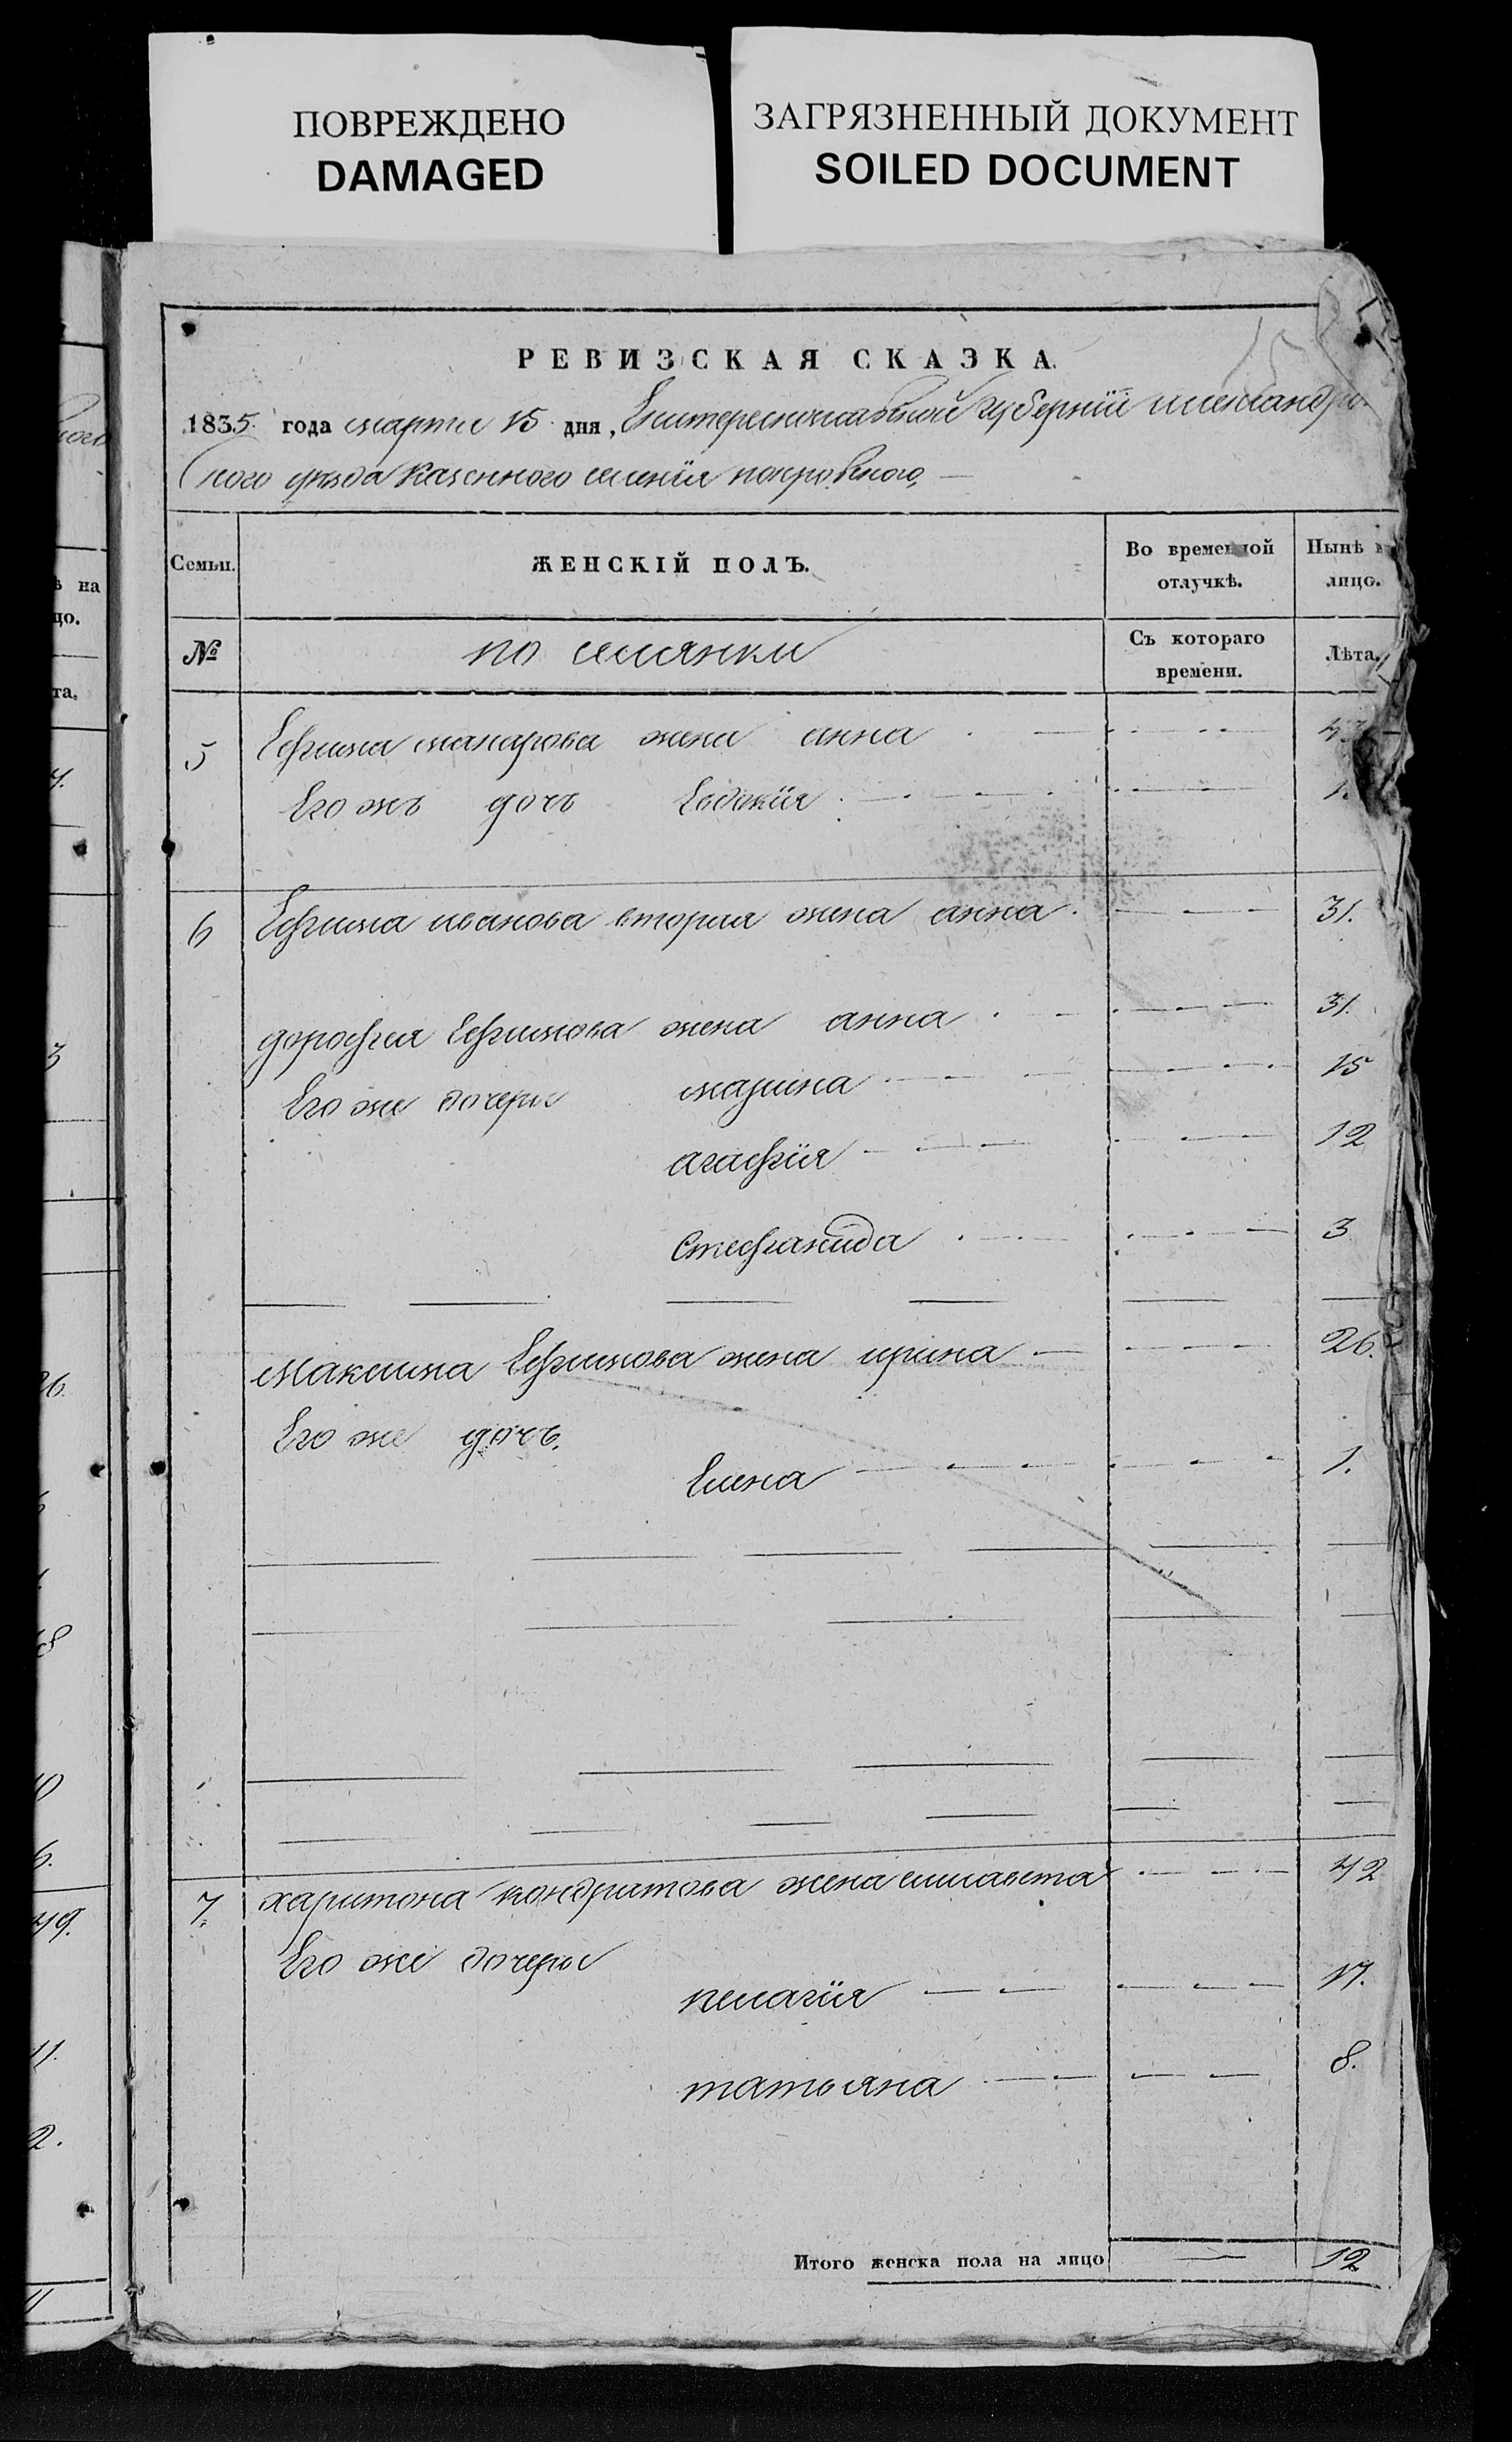 ПОВРЕЖДЕНО
DAMAGED
ЗАГРЯЗНЕННЫЙ ДОКУМЕНТ
SOILED DOCUMENT
РЕВИЗСКАЯ СКАЗКА.
1835. года марта 15 дня, Екатеринославской губернїи александров-
ского уезда Казенного селенїя покровского,
Семьи.
ЖЕНСКІЙ ПОЛЪ.
Во временной отлучкѣ.
Нынѣ на лицо.
№
поселянки
Съ котораго времени.
Лѣта.
5 Ефима макарова жена анна
Его жъ дочь Евдокїя 1.
6 Ефима иванова вторая жена анна 31.
дорофея Ефимова жена анна 31.
Его же дочери марина 15
агафїя 12
Стефанида 3
максима Ефимова жена ирина 26.
Его же дочь.
Елена 1.
7. харитона кондратова жена елисавета 42
Его же дочери
пелагїя 17.
татьяна 8.
Итого женска пола на лицо 12